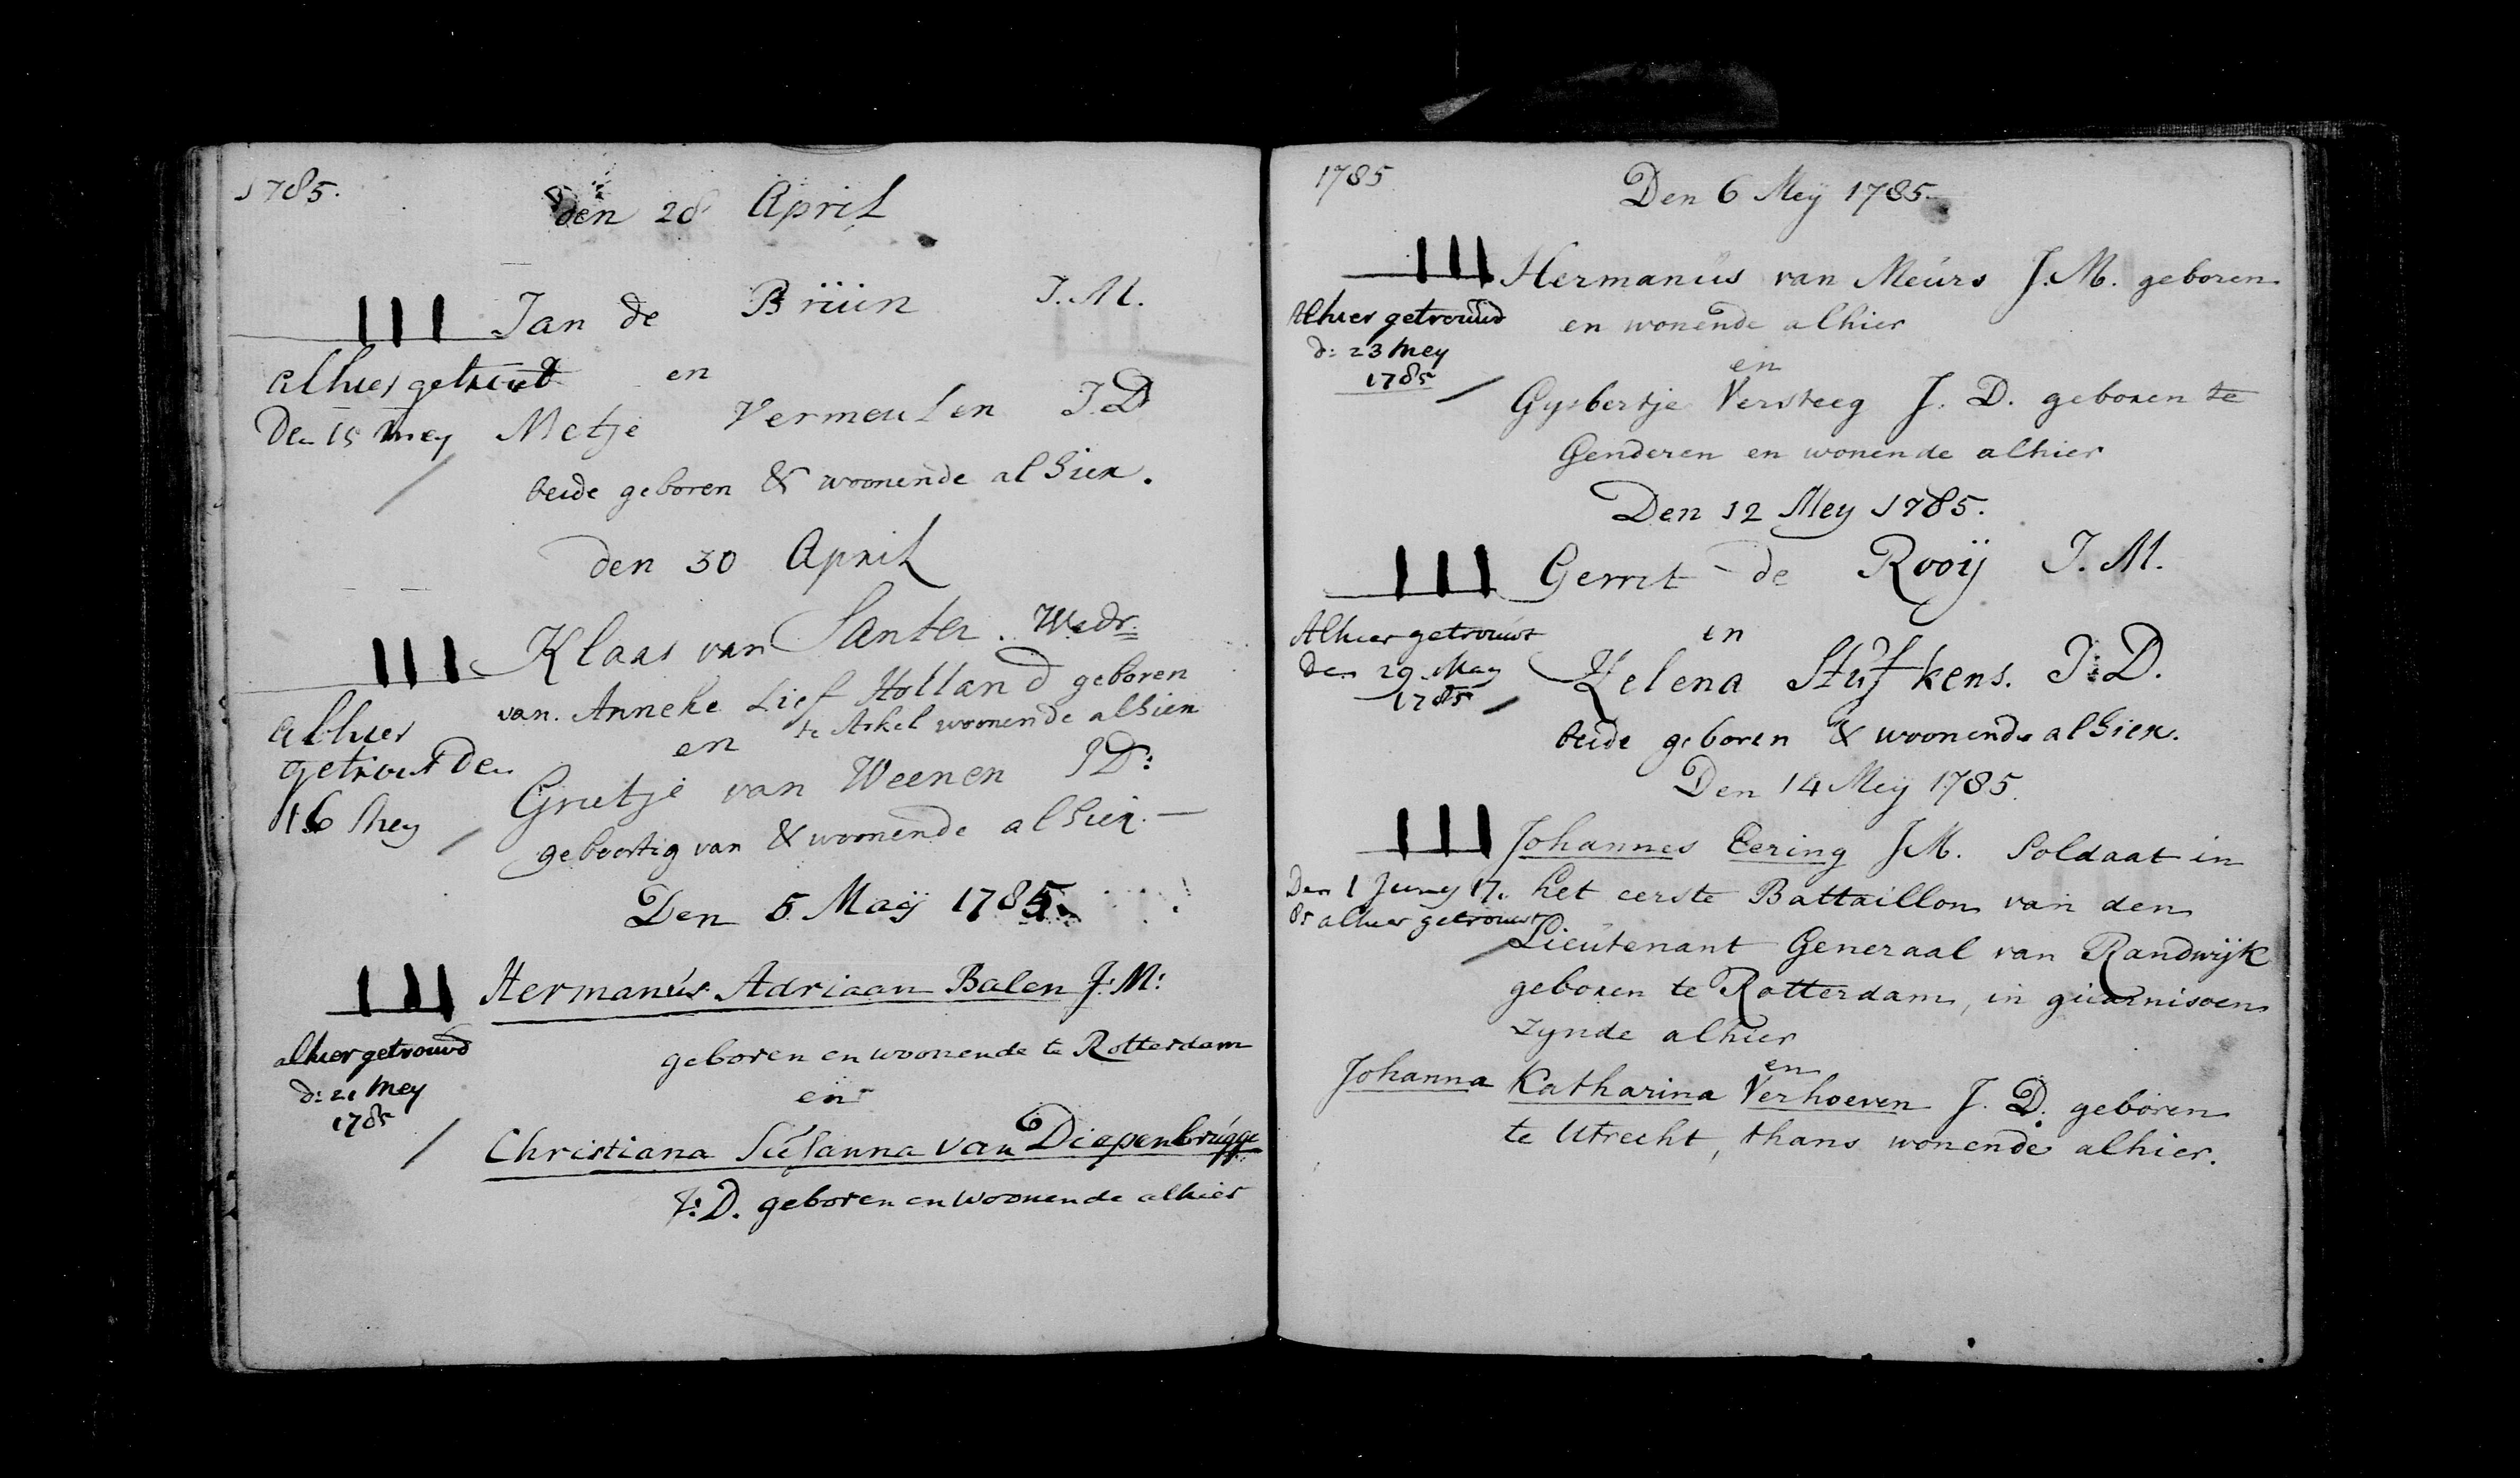 1785.
den 28 April
III Jan de Brüin J.M.
alhier getrout
en
Den 15 Mey
Metje Vermeulen J.D
beide geboren & woonende alhier.
den 30 April
III Klaas van Santen. Wedr.
van. Anneke Lief Holland geboren
te Arkel woonende alhier
alhier
getrout Den
16 Mey
en
Grietje van Weenen JD:
geboortig van & woonende alhier. —
Den 5 Maij 1785.
III Hermanús Adriaan Balen J: M:
geboren en woonende te Rotterdam
alhier getrouwd
d: 21 Mey
1785
en
Christiana Súsanna van Diepenbrúgge
J: D. geboren en woonende alhier
1785
Den 6 Meij 1785.
III Hermanús van Meúrs J. M. geboren
en wonende alhier
Alhier getrouwd
d: 23 Mey
1785
en
Gysbertje Versteeg J. D. geboren te
Genderen en wonende alhier
Den 12 Mey 1785.
III Gerrit de Rooij J. M.
Alhier getrouwt
Den 29 May
1785
en
Helena Stufkens. J: D.
beide geboren & woonende alhier.
Den 14 Meij 1785.
III Johannes Eering J M. Soldaat in
het eerste Battaillon van den
Den 1 Juny 17.
85 alhier getrouwt
Lieútenant Generaal van Randwijk
geboren te Rotterdam, in guarnisoen
zynde alhier
en
Johanna Katharina Verhoeven J. D. geboren
te Utrecht, thans wonende alhier.